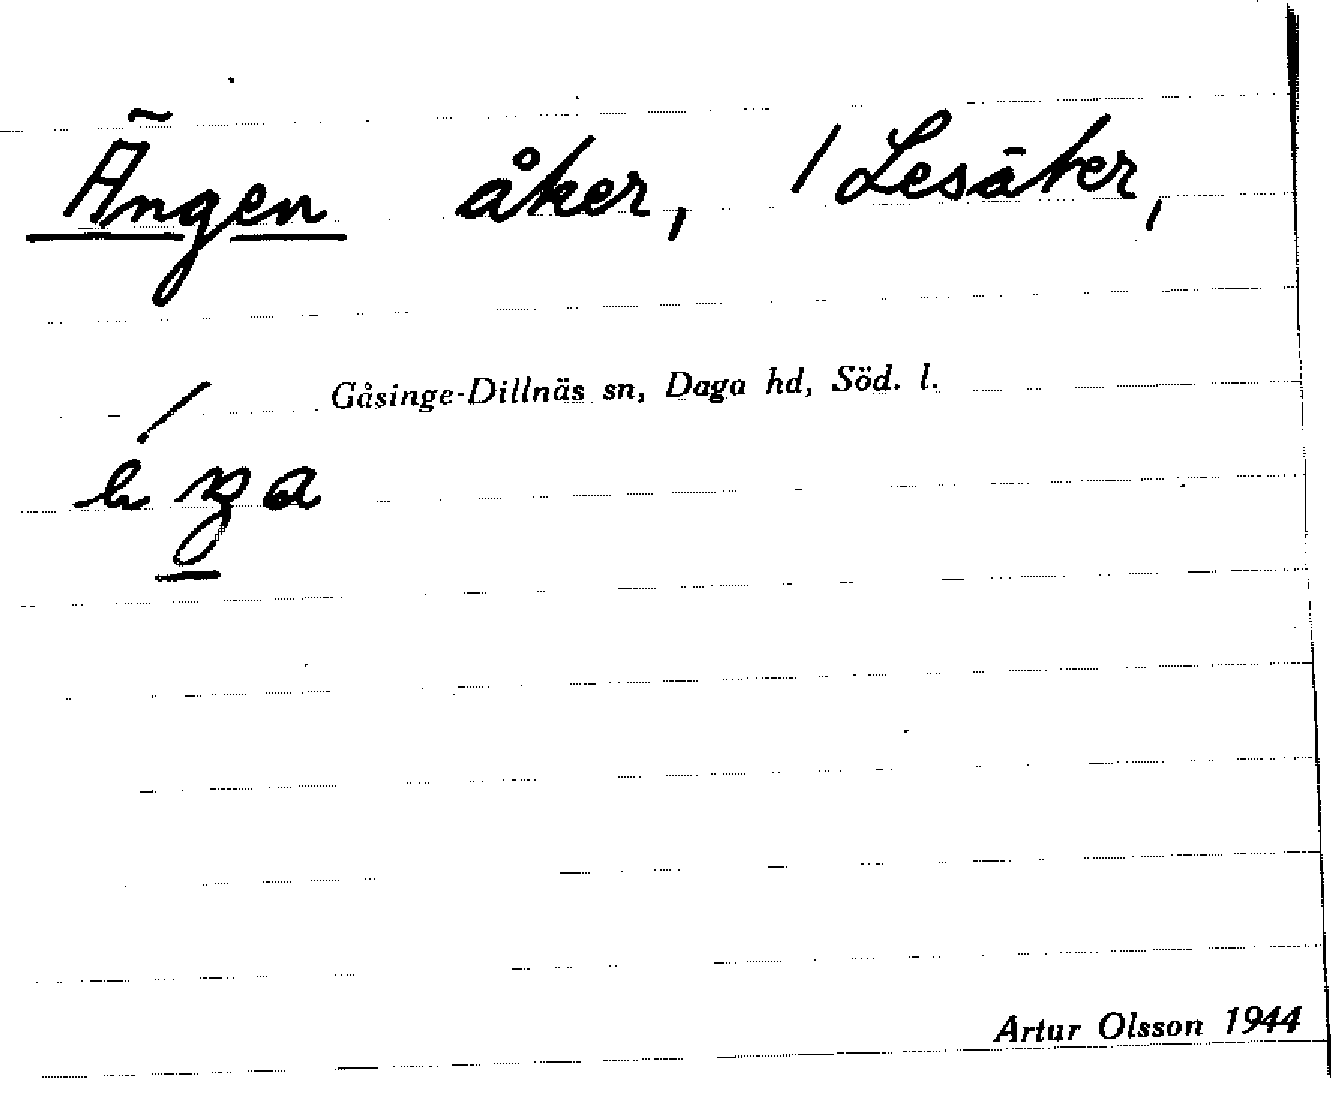 Ängen åker, / Lesäter,
Gåsinge-Dillnäs sn, Daga hd, Söd. l.
Artur Olsson 1944